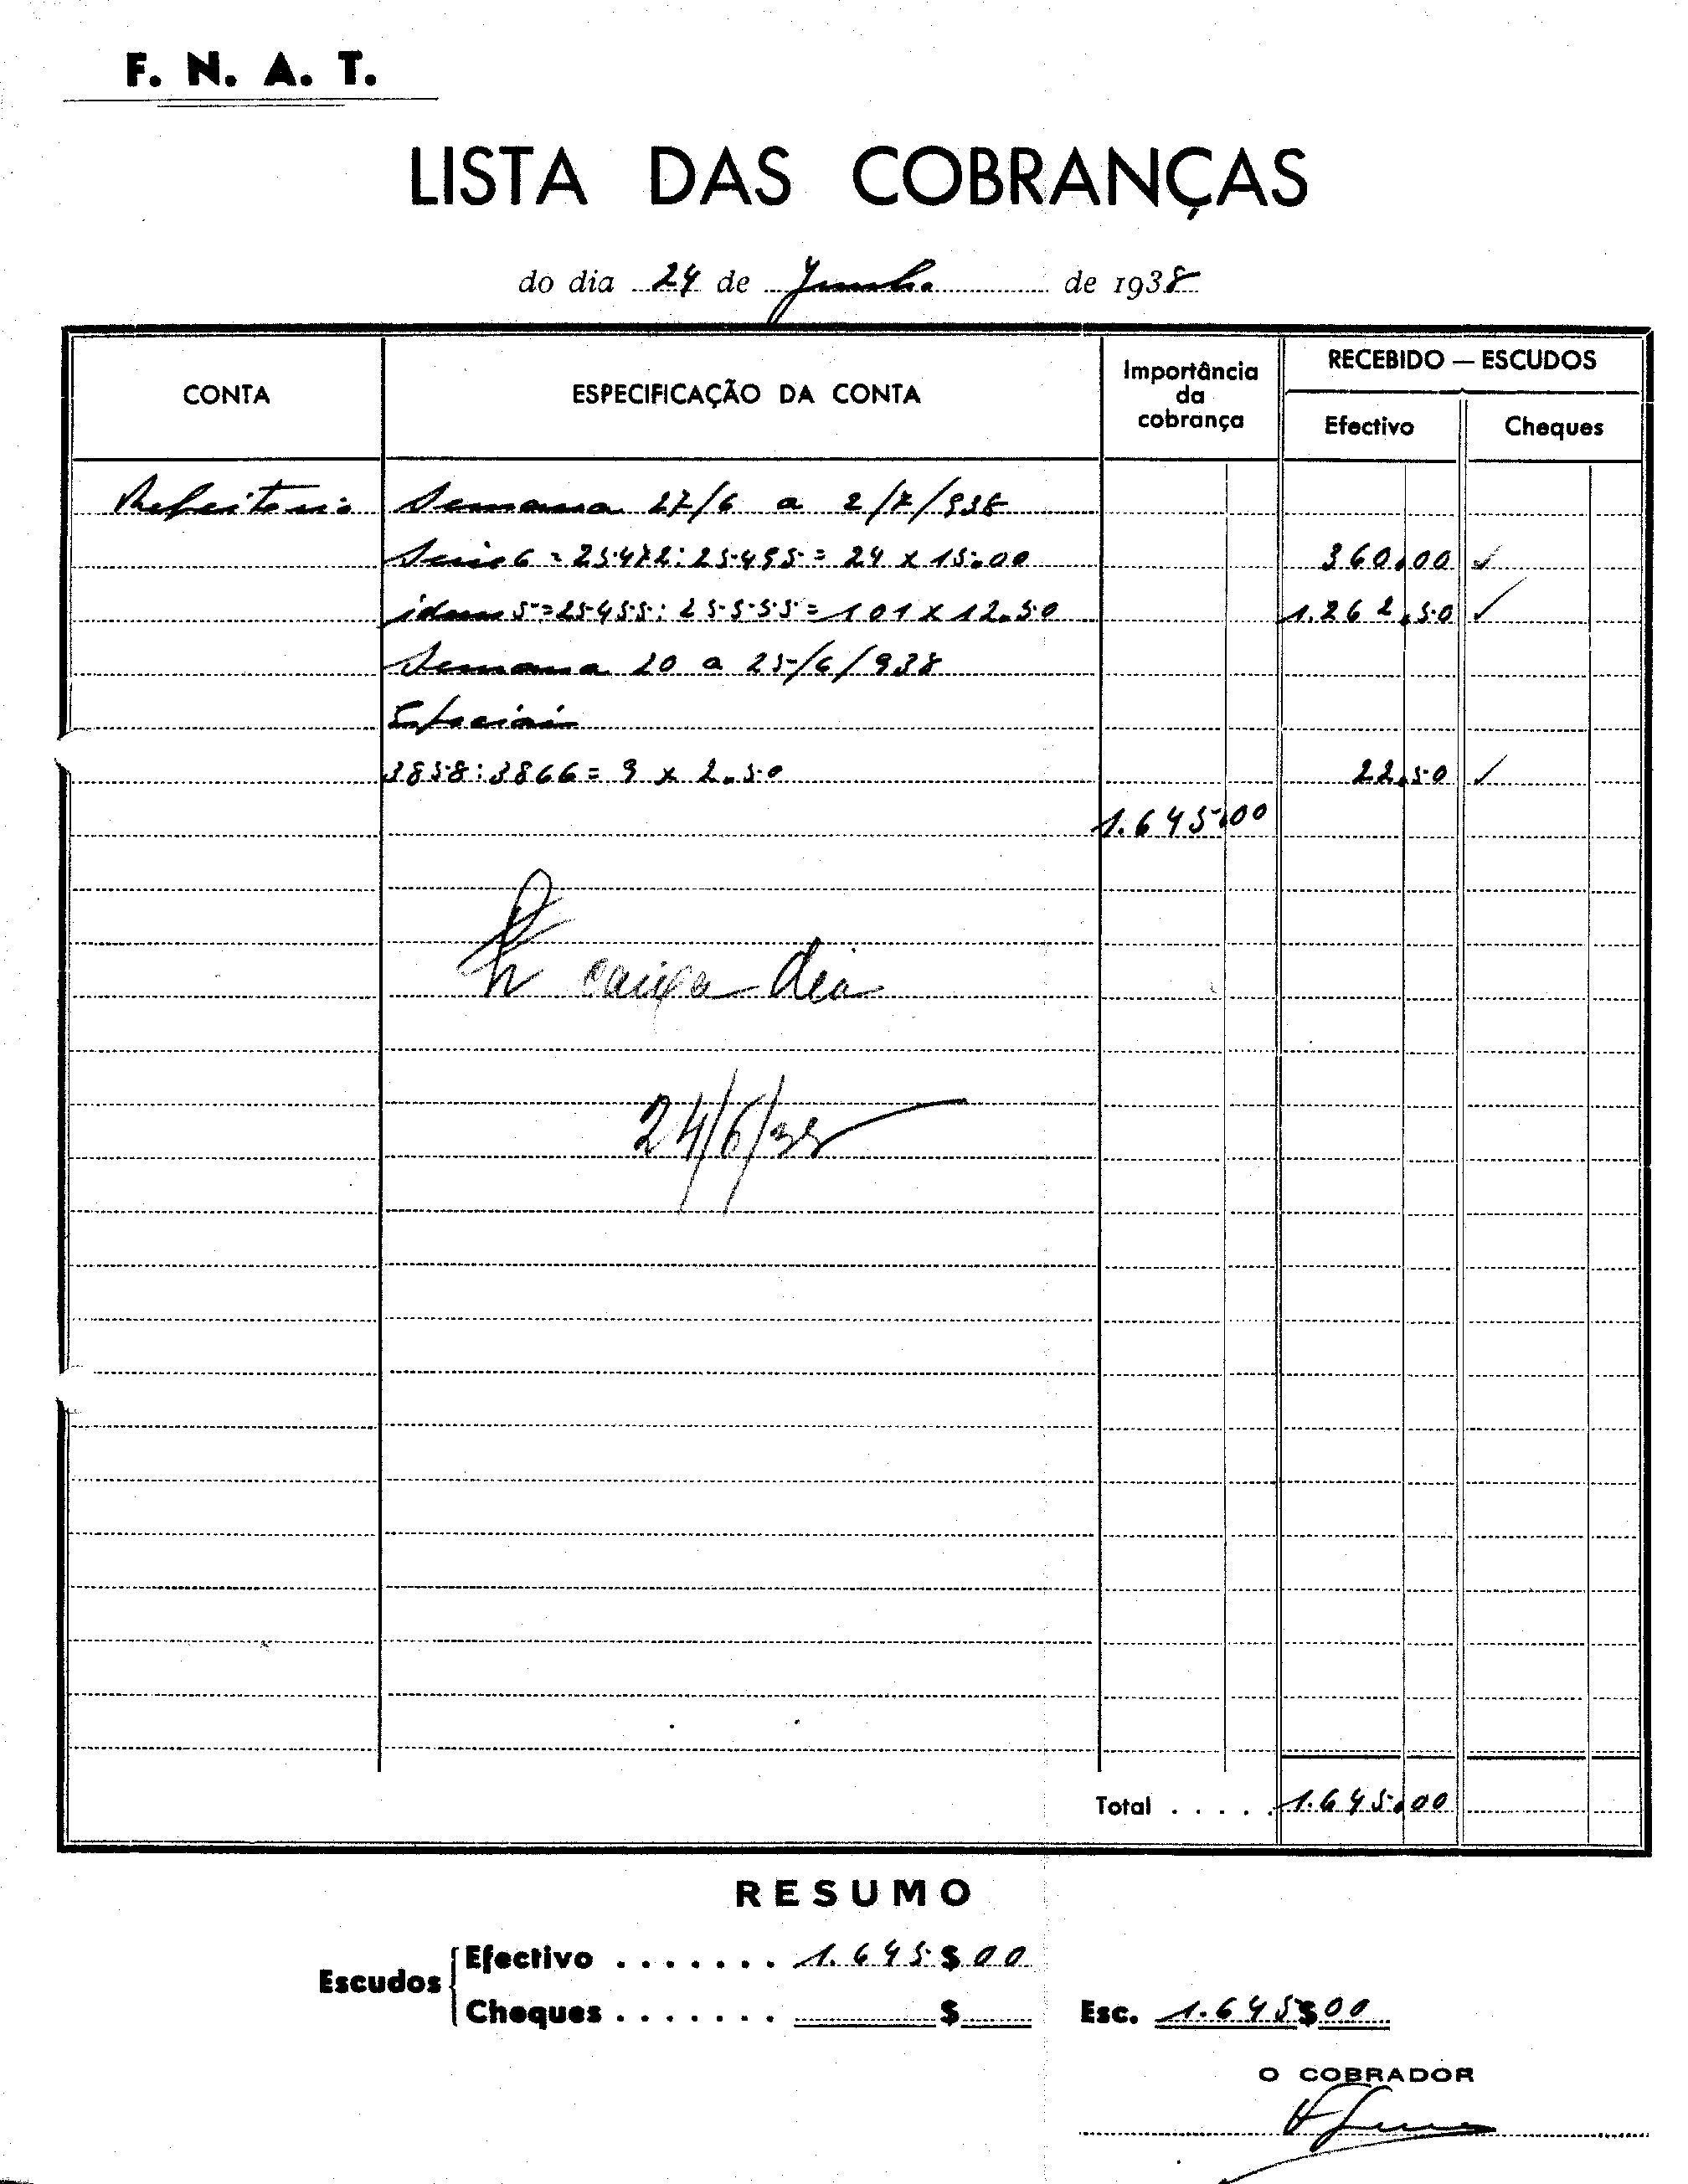 F. N. A. T.
LISTA DAS COBRANÇAS
do dia 24 de Junho de 1938
CONTA
ESPECIFICAÇÃO DA CONTA
Importância
da
cobrança
RECEBIDO — ESCUDOS
Efectivo
Cheques
Refeitorio Semana 27/6 a 2/7/938
Serie 6 = 25.472:25.495 = 24 x 15.00 360.00 ✓
idem 5 = 25455:25555 = 101 x 12.50 1.262.50 ✓
Semana 20 a 25/6/938
Especiais
3858:3866 = 9 x 2.50 22.50 ✓
1.645.00
caixa dia
24/6/38
Total . . . . . 1.645.00
RESUMO
Escudos
Efectivo . . . . . . . 1.645$00
Cheques . . . . . . . $
Esc. 1.645$00
O COBRADOR